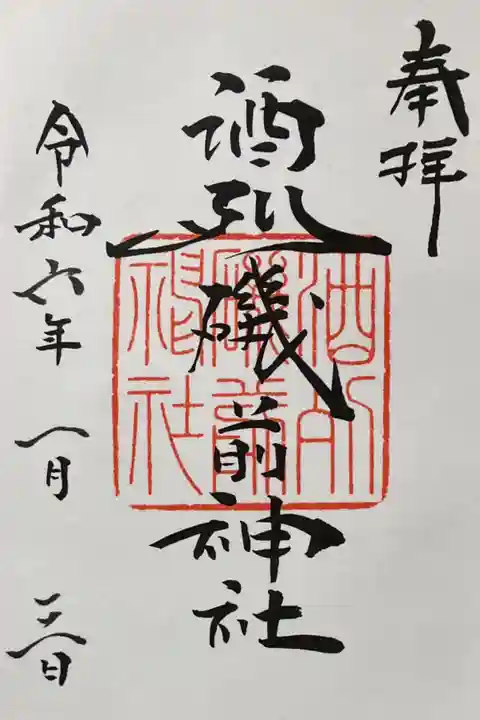 奉拝
酒列磯前神社
酒列
磯前
神社
令和六年一月三日